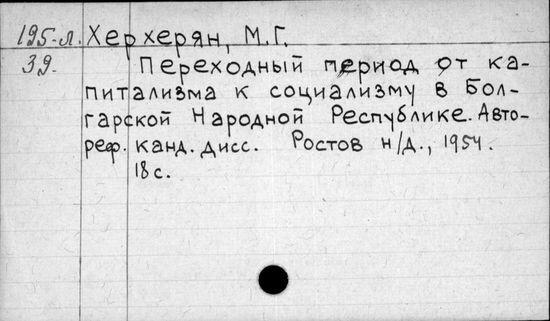 195-л. Херхерян, М.Г.
39. Переходный период от ка-
питализма к социализму в Бол-
гарской Народной Республике. Авто-
реф. канд. дисс. Ростов н/Д., 1954.
18 с.